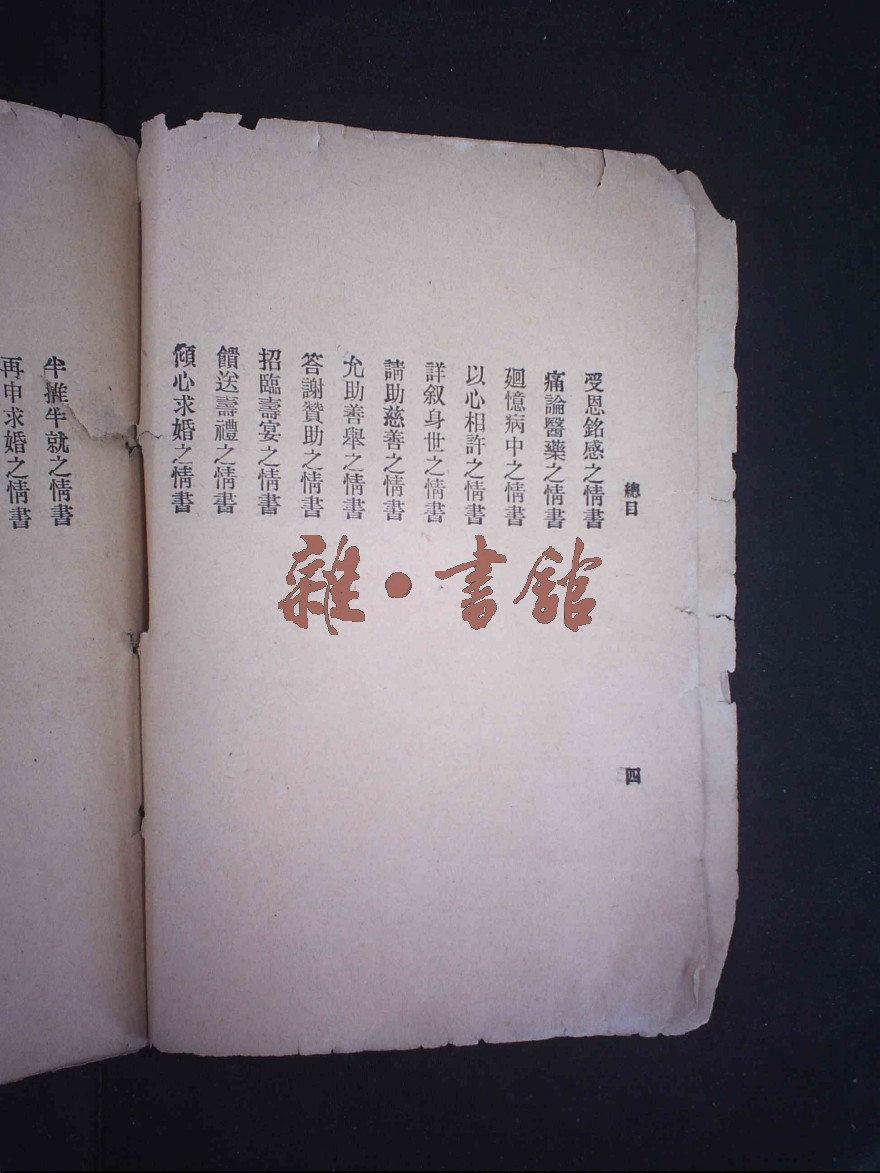 總目
四
受恩銘感之情書
痛論醫藥之情書
廻憶病中之情書
以心相許之情書
詳叙身世之情書
請助慈善之情書
允助善舉之情書
答謝贊助之情書
招臨壽宴之情書
饋送壽禮之情書
傾心求婚之情書
半推半就之情書
再申求婚之情書
雜·書館